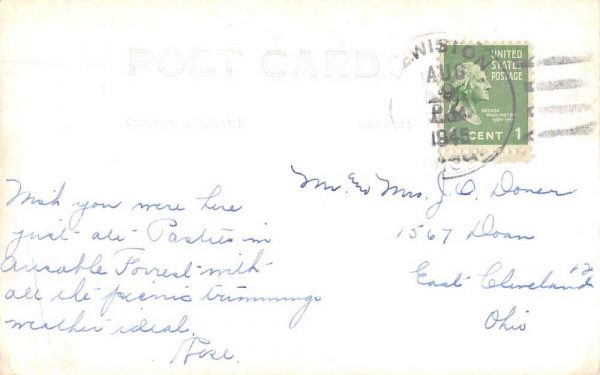 POST CARD
CORRESPONDENCE
ADDRESS
LEWISTON
AUG
9
PM
1945
MICH.
UNITED
STATES
POSTAGE
GEORGE
WASHINGTON
CENT 1
Wish you were here
just ate Pasties in
Ausable Forrest with
all the picnic trimmings
weather ideal.
Rose.
Mr. & Mrs. J. O. Doner
1567 Doan
East Cleveland 12
Ohio